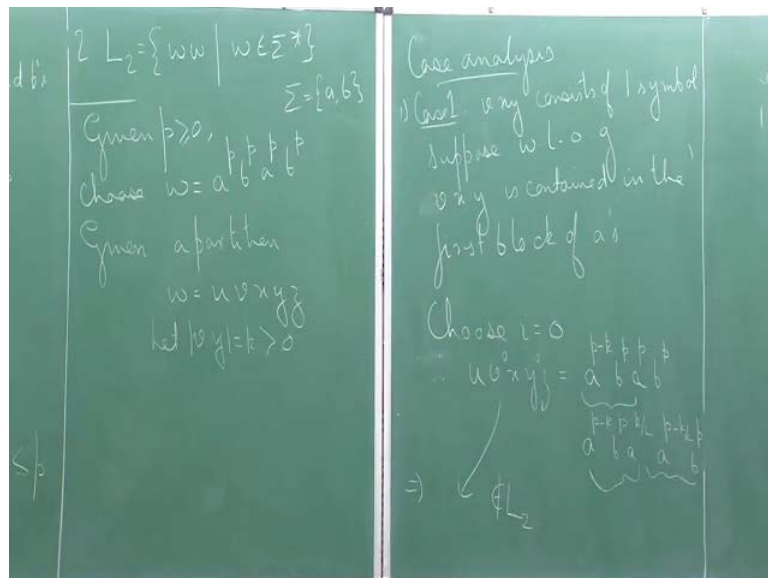 d b's
≤p
2 L₂ = { ww | w ∈ Σ* }
Σ = {a, b}
Given p ≥ 0,
Choose w = a^p b^p a^p b^p
Given a partition
w = u v x y z
Let |v y| = k > 0
Case analysis
1) Case 1 vxy consists of 1 symbol
Suppose w.l.o.g
v x y is contained in the
first block of a's
Choose i = 0
∴ u v⁰ x y⁰ z = a^{p-k} b^p a^p b^p
a^{p-k} b^p a^{k/2} a^{p-k/2} b^p
⇒ ∉ L₂